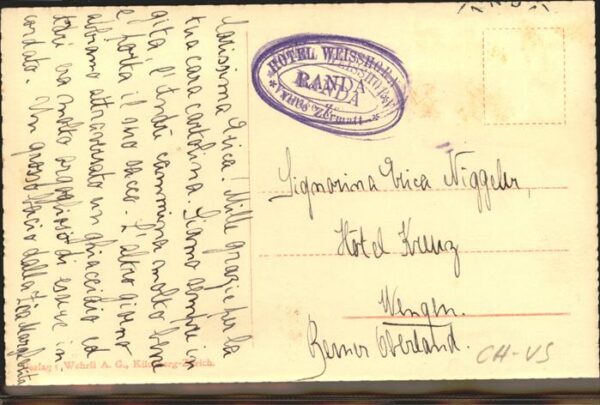 Carissima Erica! Mille grazie per la
tua cara cartolina. Siamo sempre in
gita e l'Endù cammina molto bene
e porta il suo sacco. L'altro giorno
abbiamo attraversato un ghiacciaio ed
era molto orgoglioso di essere in
cordata. Un grosso bacio dalla Zia Margherita
HOTEL WEISSHORN
RANDA
Zermatt
Signorina Erica Niggeler,
Hôtel Kreuz
Wengen.
Berner Oberland.
CH-VS
Verlag: Wehrli A. G., Kilchberg-Zürich.